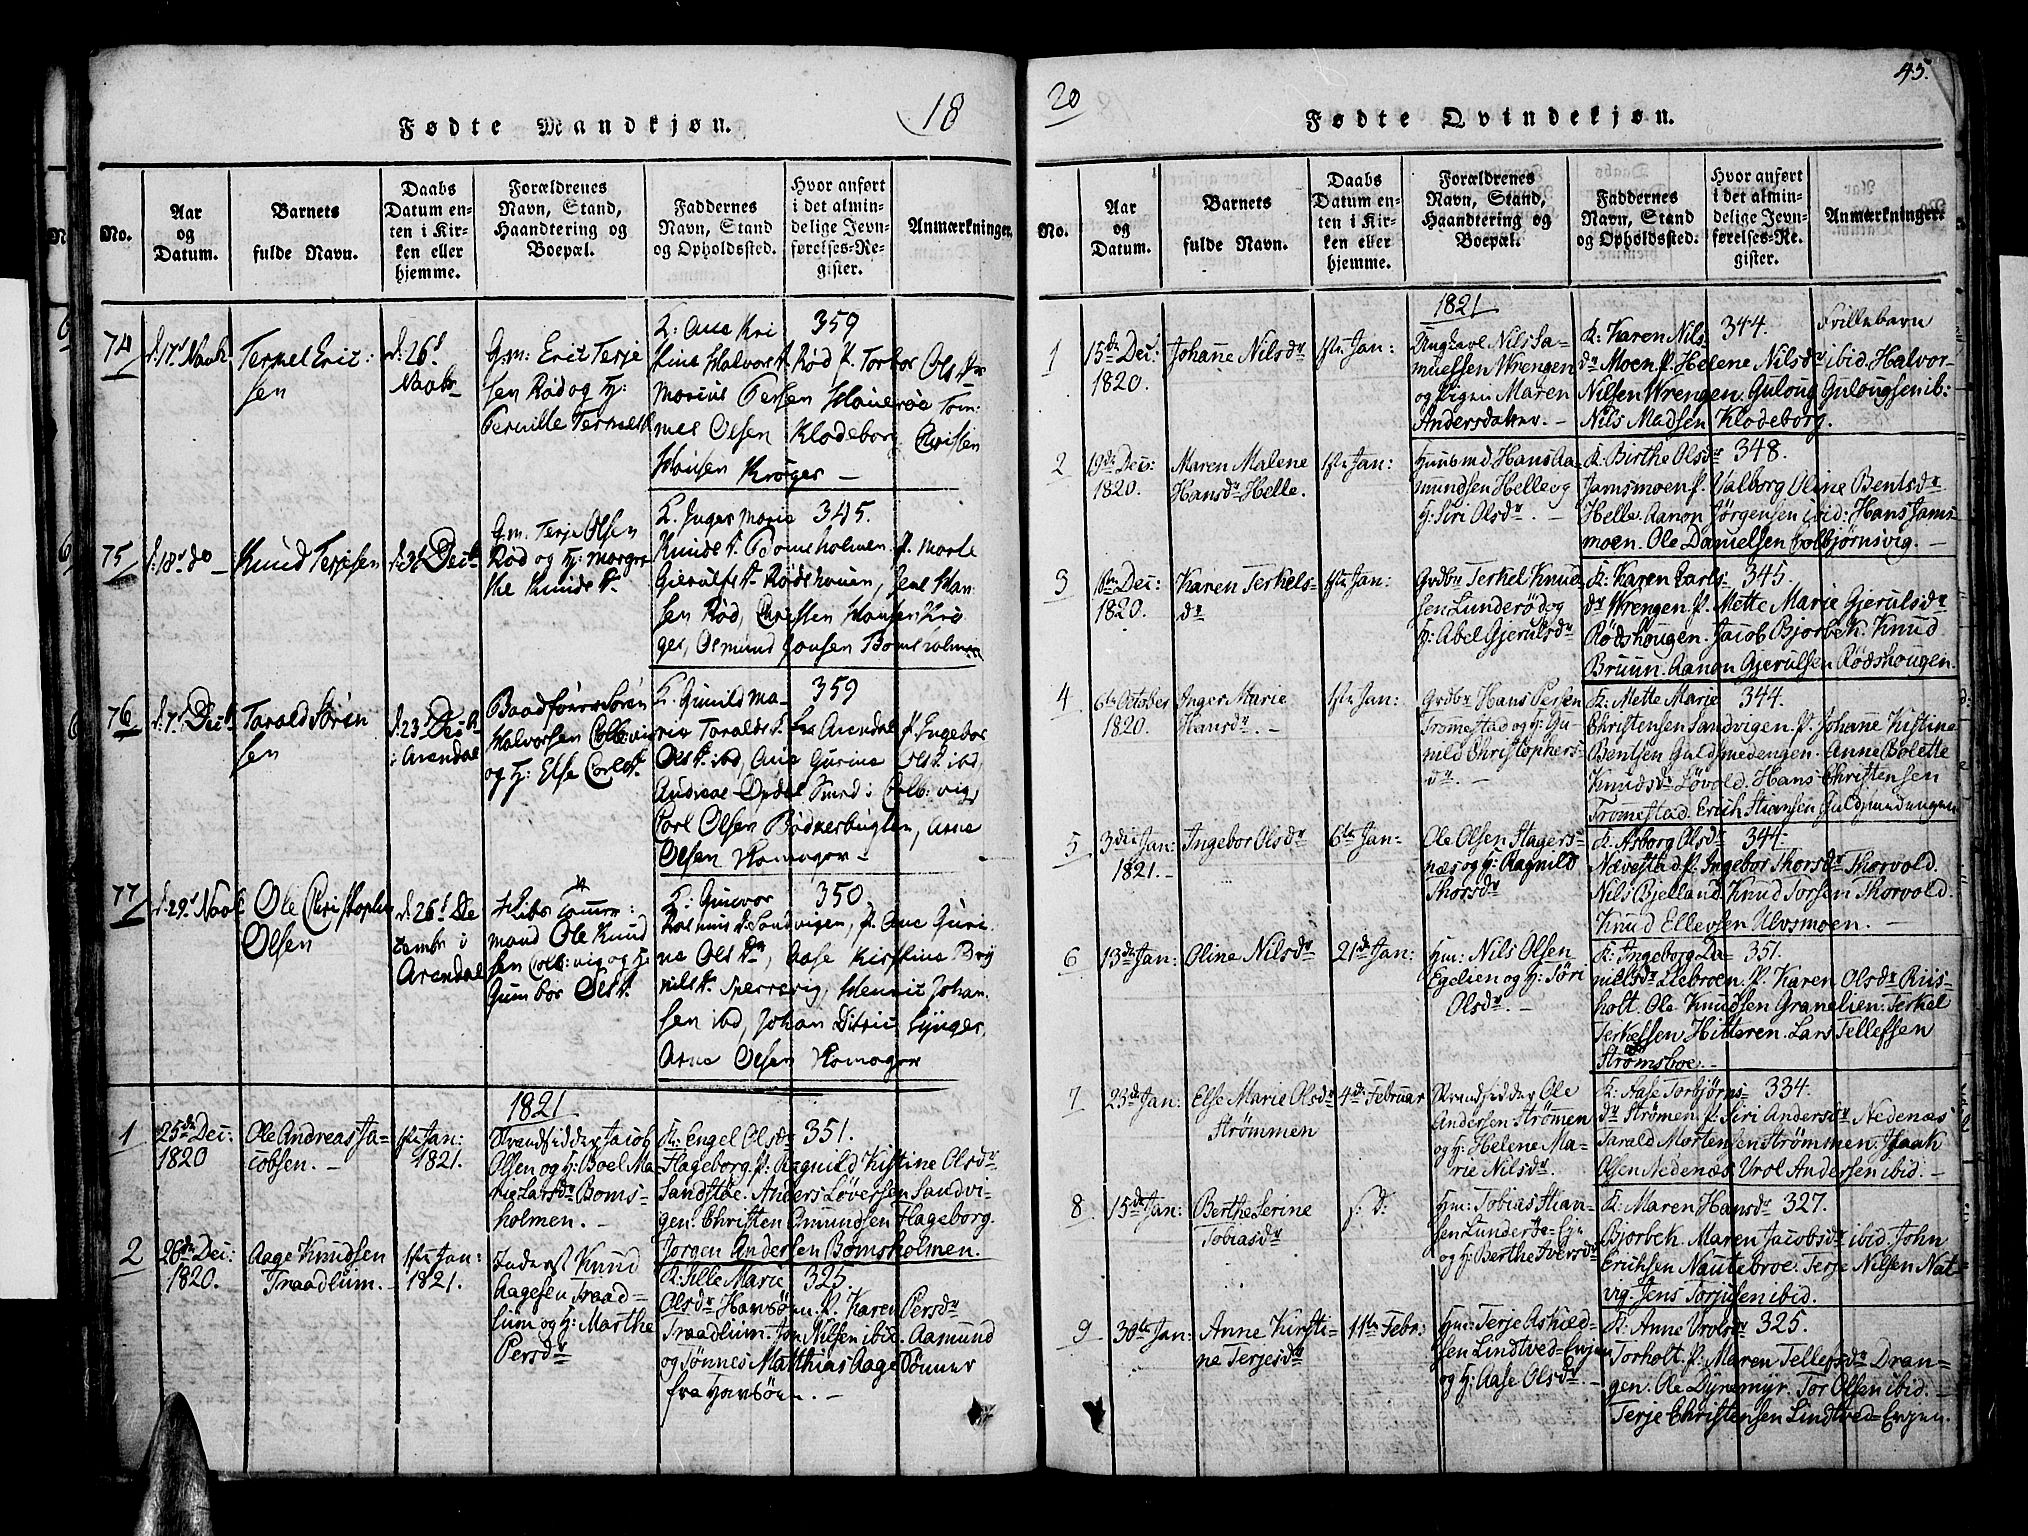 18
Fødte Mandkjøn.
No.
Aar
og
Datum.
Barnets
fulde Navn.
Daabs
Datum en-
ten i Kir-
ken eller
hjemme.
Forældrenes
Navn, Stand,
Haandtering og
Boepæl.
Faddernes
Navn, Stand
og Opholdssted.
Hvor anført
i det almin-
delige Jevn-
førelses-Re-
gister.
Anmærkninger.
74
d: 17d Novb.
Terkel Erics:
sen
d: 26d
Novbr
Gm: Eric Terje
sen Rød og H:
Pernille Terkelsd.
359
Halvorsd. Rød
Olsen Klodeborg Christen
Hansen Krøger —
75
d: 18d do —
Knud Terjesen
d: 31 Decb.
Gm. Terje Olsen
Rød og H: Margre
the Knudsd.
K. Inger Marie 345.
Knudsd. Bomsholmen P. Marte
Gierulfsd. Rødshouen, Jens Han
sen Rød, Christen Hansen Krø
ger, Osmund Jonsen Bomsholmen
76
d: 7d Decb.
Tarald Søren
sen
d. 23d Decbr
i Arendal
Baadfører Søren
Halvorsen Colb:vig
og H: Else Carlsd.
K: Gunild Ma- 359
rie Taraldsd. fra Arendal P. Ingebor
Olsd. ibd, Ane Gurine Olsd. ibd,
Colb:vig,
Carl Olsen Bødkerbugten, Arne
Olsen Homagor —
77
d: 29d Novb.
Ole Christopher
Olsen
d. 26d De
cembr i
Arendal
mand Ole Knud
sen Colb:vig og H:
Gumbor Olsd.
K: Gunvor 350
Rasmusd. Sandvigen, P. Ane Guri
ne Olsdr, Aase Kirstine Bry
nilsd. Sperrevig, Henric Johan
sen ibd, Johan Ditric Lynger,
Arne Olsen Homagor
1821
1
25de Dec:
1820
Ole Andreas Ja-
cobsen. —
1ste Jan:
1821.
Strandsidder Jacob
Olsen og H: Boel Ma-
rie Larsdr Boms-
holmen. —
K: Engel Olsdr 351.
Hageborg. P: Ragnild Kistine Olsdr
Sandstøe. Anders Løversen Sandvi-
gen. Christen Omundsen Hageborg.
Jørgen Andersen Bomsholmen.
2
28de Dec:
1820.
Aage Knudsen
Traadlum. —
1ste Jan:
1821.
Inderst Knud
Aagesen Traad-
lum og H: Marthe
Persdr
K: Sille Marie 325.
Olsdr Havsøen. P. Karen Persdr
Traadlum. Jon Nilsen ibid. Aamund
og Tønnes Matthias Aage Sønner
fra Havsøen. —
20
45.
Fødte Qvindekjøn.
No.
Aar
og
Datum.
Barnets
fulde Navn.
Daabs
Datum en-
ten i Kir-
ken eller
hjemme.
Forældrenes
Navn, Stand,
Haandtering og
Boepæl.
Faddernes
Navn, Stand
og Opholdssted.
Hvor anført
i det almin-
delige Jevn-
førelses-Re-
gister.
Anmærkninger.
1821
1
15de Dec:
1820.
Johanne Nilsdr
1ste Jan:
Ungkarl Nils Sa-
muelsen Wrengen
og Pigen Maren
Andersdatter. —
K: Karen Nils- 344. Tvillebarn
dr Moen. P. Helene Nilsdr ibid. Halvor
Nilsen Wrengen. Guloug Gulougsen ib:
Nils Madsen Klodeborg.
2
19de Dec:
1820.
Maren Malene
Hansdr Helle.
1ste Jan:
Huusmd Hans Aa-
mundsen Helle og
H: Siri Olsdr. —
K: Birthe Olsdr 348.
Jamsmoen. P. Valborg Oline Bentsdr
Helle. Aanon Jørgensen ibid: Hans Jams-
moen. Ole Danielsen Colbjørnsvig. —
3
Dec:
1820.
Karen Terkels-
dr
1ste Jan:
Grdbr Terkel Knud-
sen Lunderød og
H: Abel Gjerulsdr
K: Karen Carls- 345.
dr Wrengen. P. Mette Marie Gjerulsdr
Rødshougen. Jacob Bjorbek. Knud
Bruun. Aanon Gjerulsen Rødshougen.
4
6te October
1820.
Inger Marie
Hansdr. —
1ste Jan:
Grdbr Hans Persen
Tromestad og H: Gu-
nild Christophers-
dr. —
K: Mette Marie 344.
Christensen Sandvigen. P. Johanne Kistine
Bentsen Guldsmedengen. Anne Bolette
Knudsdr Løvold. Hans Christensen
Tromestad. Erich Stiansen Guldsmedengen
5
3die Jan:
1821. —
Ingebor Olsdr
6te Jan:
Ole Olsen Stagers-
næs og H: Aagnild
Thorsdr
K: Asborg Olsdr 344
Nævestad. P. Ingebor Thorsdr Thorvold.
Nils Bjelland. Knud Torsen Thorvold.
Knud Ellevsen Ulvsmoen. —
6
13de Jan:
Oline Nilsdr
21de Jan:
Hm: Nils Olsen
Egelien og H: Søri
Olsdr. —
K: Ingeborg Da- 351.
nielsdr Lilebroen. P. Karen Olsdr Riis-
holt. Ole Knudsen Granelien. Terkel
Terkelsen Hitteren. Lars Tellefsen
Strømsboe. —
7
23de Jan:
Else Marie Olsdr
Strømmen
4de Februar
Strandsidder Ole
Andersen Strømen
og H: Helene Ma-
rie Nilsdr
K: Aase Torbjørns- 334.
dr Strømen. P. Siri Andersdr Nedenæs
Tarald Mortensen Strømmen. Isaak
Olsen Nedenæs. Vrol Andersen ibid. —
8
15de Jan:
Berthe Serine
Tobiasdr
s. d:
Hm: Tobias Stian-
sen Lunderød-Eje
og H: Berthe Iversdr
K: Maren Hansdr 327.
Bjorbek. Maren Jacobsdr ibid. John
Erichsen Nautebroe. Terje Nilsen Nat-
vig. Jens Torjusen ibid.
9
30te Jan:
Anne Kirsti-
ne Terjesdr
11te Febr:
Hm: Terje Aslied-
sen Lindtved-Enjen
og H: Aase Olsdr —
K: Anne Vrolsdr 325.
Torholt. P. Maren Tellefsdr Dran-
gen. Ole Dyremyr. Tor Olsen ibid. —
Terje Christensen Lindtved-Enjen.